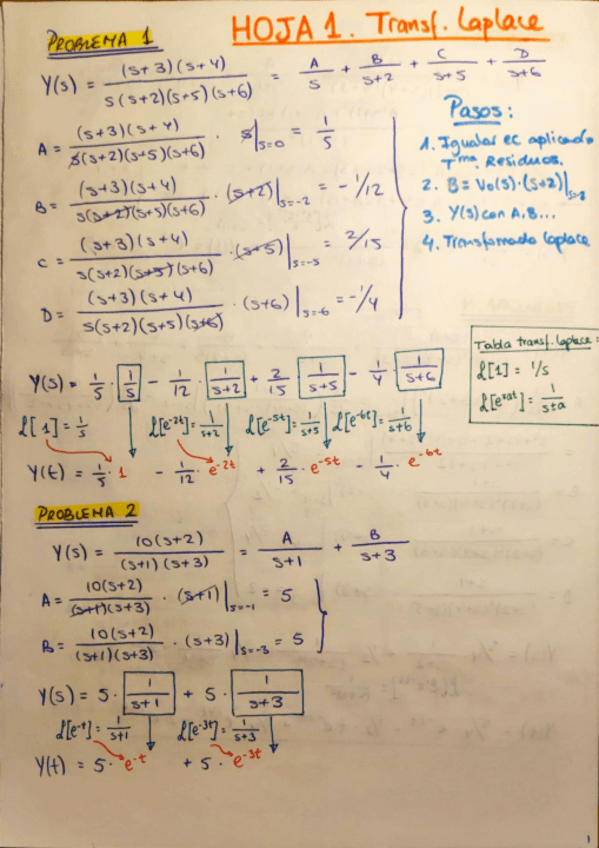 HOJA 1. Transf. Laplace
PROBLEMA 1
Y(s) = (s+3)(s+4) / s(s+2)(s+5)(s+6) = A/s + B/s+2 + C/s+5 + D/s+6
A = (s+3)(s+4) / s(s+2)(s+5)(s+6) · s|s=0 = 1/5
B = (s+3)(s+4) / s(s+2)(s+5)(s+6) · (s+2)|s=-2 = -1/12
C = (s+3)(s+4) / s(s+2)(s+5)(s+6) · (s+5)|s=-5 = 2/15
D = (s+3)(s+4) / s(s+2)(s+5)(s+6) · (s+6)|s=-6 = -1/4
Pasos:
1. Igualar ec aplicando
Tma. Residuos.
2. B = Vo(s)·(s+2)|
3. Y(s) con A, B...
4. Transformada Laplace
Tabla transf. Laplace =
L[1] = 1/s
L[e±at] = 1/s±a
Y(s) = 1/5 · 1/s - 1/12 · 1/s+2 + 2/15 · 1/s+5 - 1/4 · 1/s+6
L[1] = 1/s L[e-2t] = 1/s+2 L[e-5t] = 1/s+5 L[e-6t] = 1/s+6
Y(t) = 1/5 · 1 - 1/12 · e-2t + 2/15 · e-5t - 1/4 · e-6t
PROBLEMA 2
Y(s) = 10(s+2) / (s+1)(s+3) = A/s+1 + B/s+3
A = 10(s+2) / (s+1)(s+3) · (s+1)|s=-1 = 5
B = 10(s+2) / (s+1)(s+3) · (s+3)|s=-3 = 5
Y(s) = 5 · 1/s+1 + 5 · 1/s+3
L[e-t] = 1/s+1 L[e-3t] = 1/s+3
Y(t) = 5 · e-t + 5 · e-3t
1